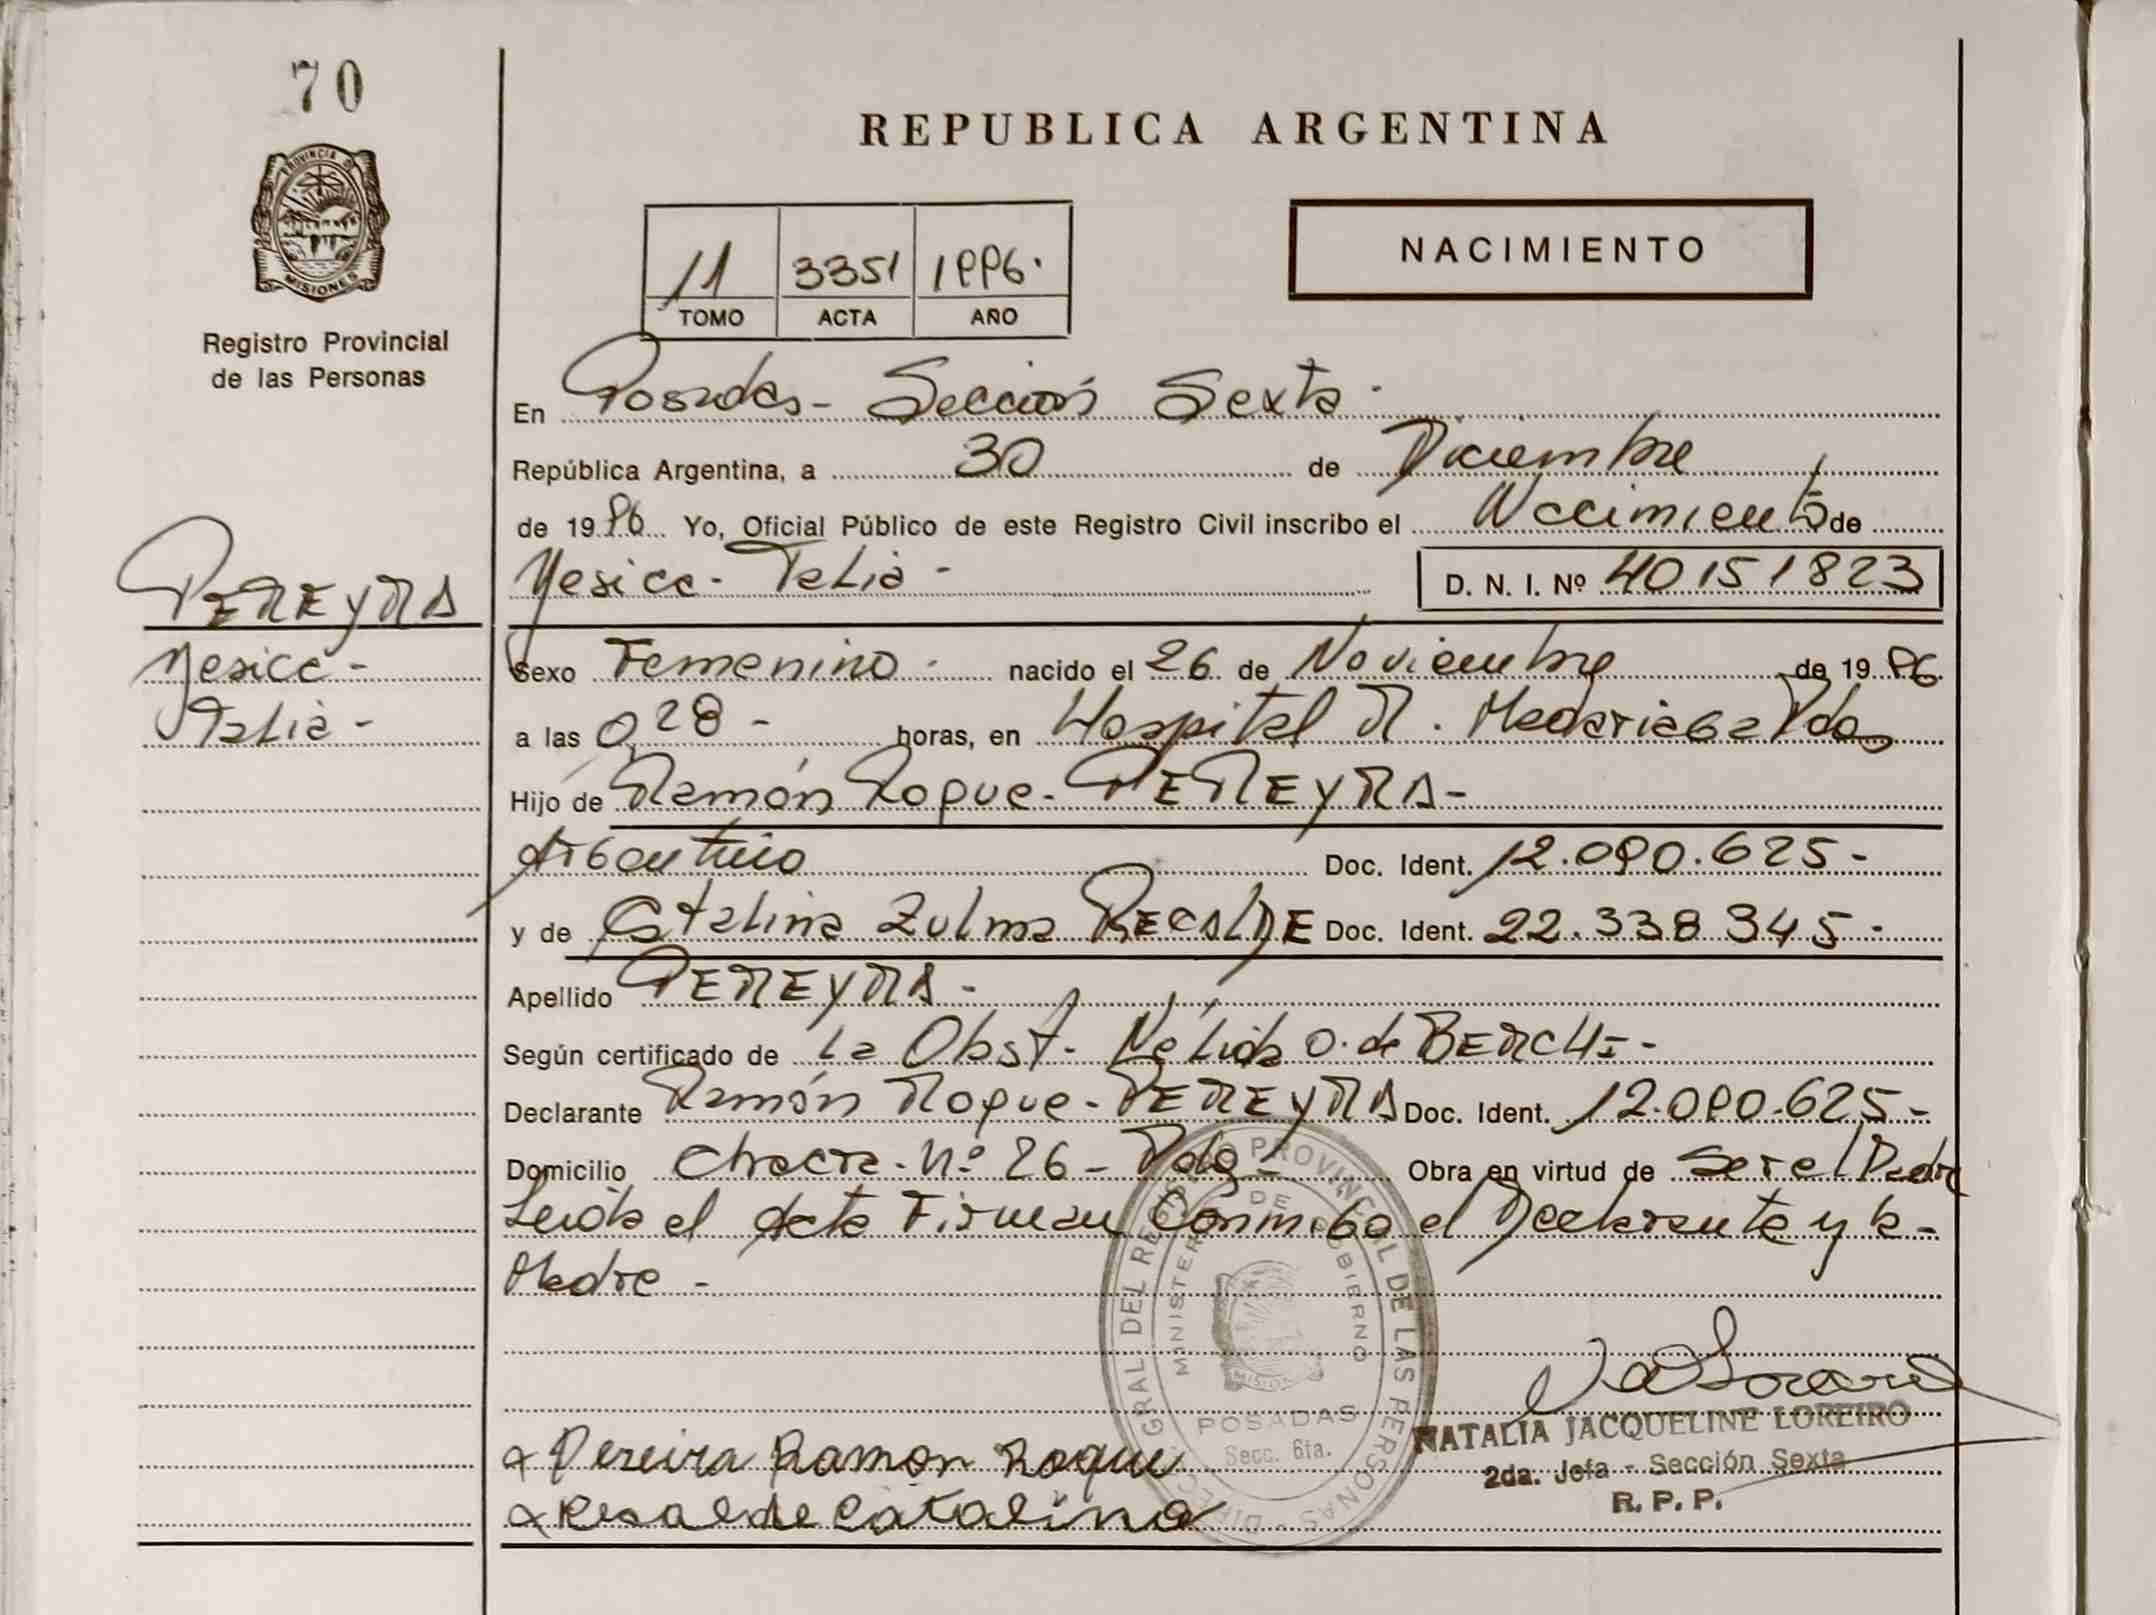 70
PROVINCIA DE
MISIONES
Registro Provincial
de las Personas
REPUBLICA ARGENTINA
11 3351 1996.
TOMO ACTA AÑO
NACIMIENTO
En Posadas - Sección Sexta -
República Argentina, a 30 de Diciembre
de 1996 Yo, Oficial Público de este Registro Civil inscribo el Nacimiento de
Yesica - Talia - D. N. I. Nº 40151823
PEREYRA
Yesica -
Talia -
Sexo Femenino - nacido el 26 de Noviembre de 1996
a las 0,28 - horas, en Hospital R. Madariaga Pdas
Hijo de Ramón Roque - PEREYRA -
Argentino Doc. Ident. 12.090.625 -
y de Catalina Zulma RECALDE Doc. Ident. 22.338.345 -
Apellido PEREYRA -
Según certificado de La Obst. Nélida O. de BERCHI -
Declarante Ramón Roque - PEREYRA Doc. Ident. 12.090.625 -
Domicilio Chacra - Nº 26 - Pdas - Obra en virtud de ser el Padre
Leída el Acta Firman Conmigo el Declarante y la -
Madre -
DIREC. GRAL. DEL REGISTRO PROVINCIAL DE LAS PERSONAS
MINISTERIO DE GOBIERNO
MISIONES
POSADAS
Secc. 6ta.
NATALIA JACQUELINE LOREIRO
2da. Jefa - Sección Sexta
R. P. P.
x Pereira Ramon Roque
x Resalde Catalina